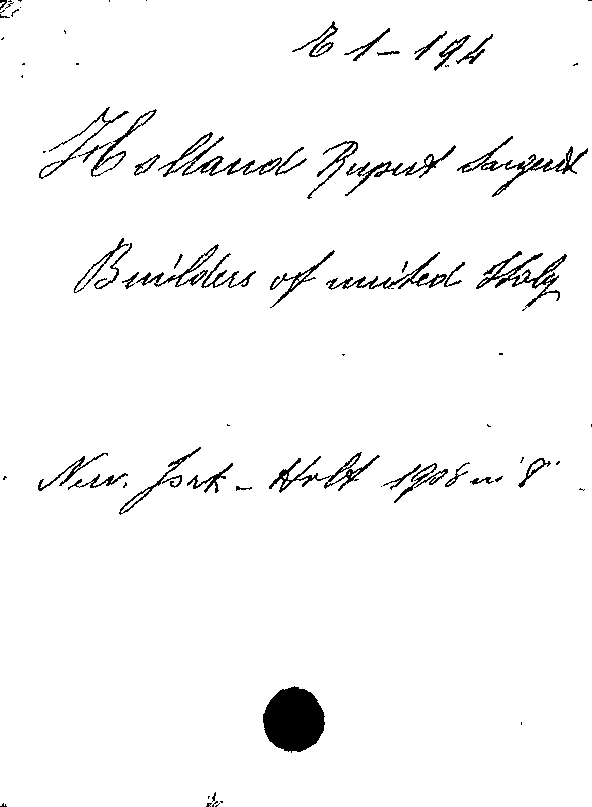 E 1-194
Holland Rupert Sargent
Builders of united Italy
New. York - Holt 1908 in 8°